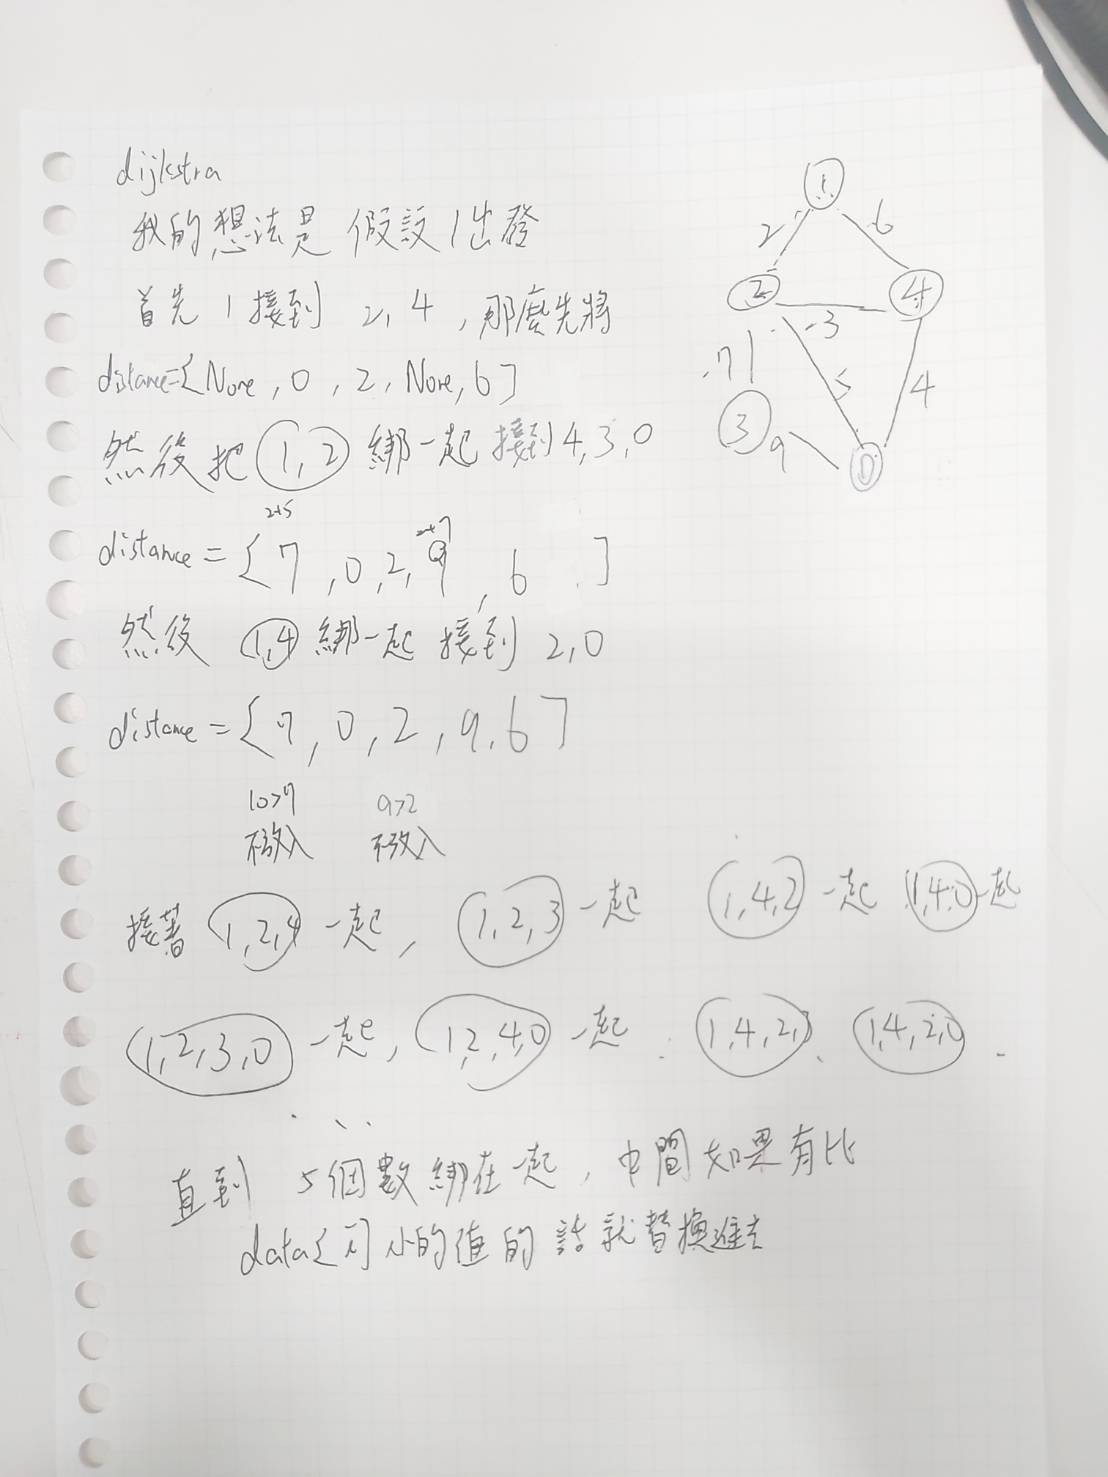 dijkstra
我的想法是 假設 1出發
首先 1 接到 2, 4 , 那麼先將
distance=[None, 0, 2, None, 6]
然後把 (1, 2) 綁一起 接到 4, 3, 0
2+5 2+7
distance = [7, 0, 2, 9, 6 ]
然後 (1,4) 綁一起 接到 2, 0
distance = [7, 0, 2, 9, 6]
10>7 9>2
不放入 不放入
接著 (1, 2, 4) 一起, (1, 2, 3) 一起 (1, 4, 2) 一起 (1, 4, 0) 一起
(1, 2, 3, 0) 一起, (1, 2, 4, 0) 一起 . (1, 4, 2, 3) 、 (1, 4, 2, 0) .
. . . .
直到 5個數綁在一起, 中間如果有比
data[i] 小的值的話就替換進去
1
2 6
2 4
3
7 5 4
3
9
0